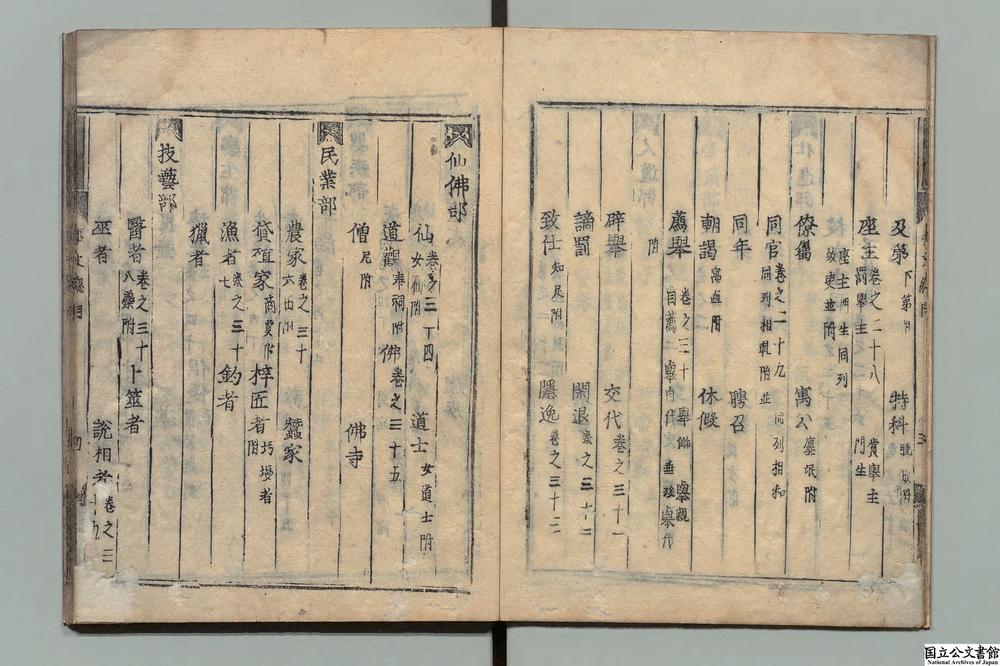 及第 下第附 特科
座主 卷之二十八 罰舉主 座主門生同列 故吏並附 賞舉主 門生
僚屬 寓公 塵氓附
同官 卷之二十九 同列相與附並 同列相和
同年 聘召
朝謁 附 休假
薦舉 附 卷之三十 自薦 舉自代 舉親 舉代
辟舉 交代 卷之三十一
謫罰 閑退 卷之三十二
致仕 知足附 隱逸 卷之三十三
仙佛部
仙 卷之三十四 女仙附 道士 女道士附
道觀 奉祠附 佛 卷之三十五
僧 尼附 佛寺
民業部
農家 卷之三十六 附 蠶家
貨殖家 商賈附 梓匠者 圬墁者附
漁者 卷之三十七 釣者
獵者
技藝部
醫者 卷之三十八 藥附 卜筮者
巫者 說相者 卷之三十九
国立公文書館
National Archives of Japan